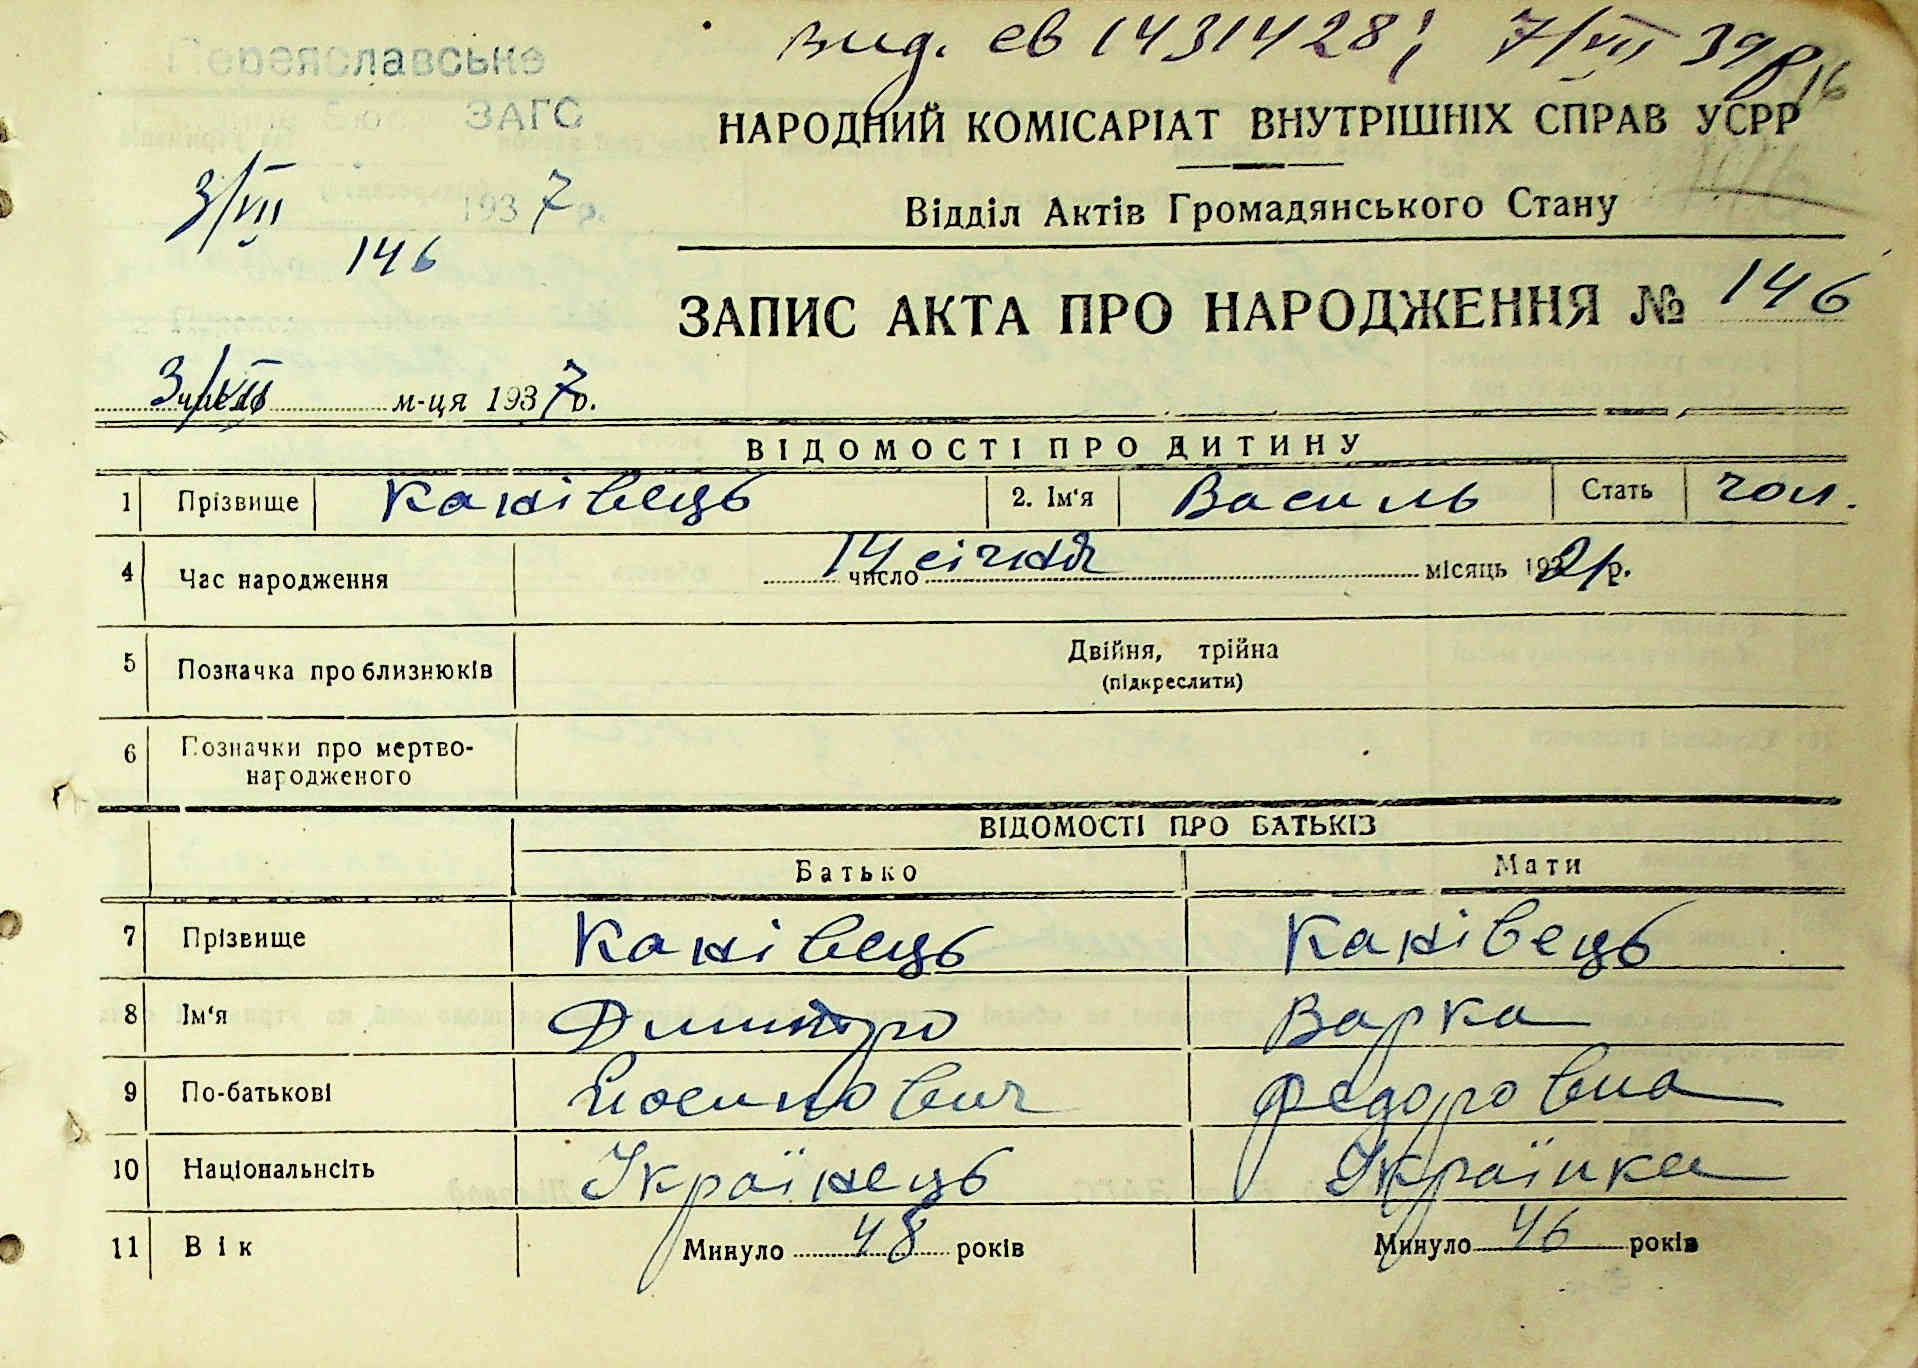 вид. ЄВ 1431428; 7/VII 39р
16
Переяславське
ЗАГС
НАРОДНИЙ КОМІСАРІАТ ВНУТРІШНІХ СПРАВ УСРР
3/VII 1937р.
Відділ Актів Громадянського Стану
146
ЗАПИС АКТА ПРО НАРОДЖЕННЯ № 146
3/VII число м-ця 1937р.
ВІДОМОСТІ ПРО ДИТИНУ
1 Прізвище Канівець 2. Ім'я Василь Стать чол.
4 Час народження 14 число січня місяць 1921р.
5 Позначка про близнюків Двійня, трійна
(підкреслити)
6 Позначки про мертво-
народженого
ВІДОМОСТІ ПРО БАТЬКІЗ
Батько Мати
7 Прізвище Канівець Канівець
8 Ім'я Дмитро Варка
9 По-батькові Йосипович Федоровна
10 Національнсіть Українець Українка
11 Вік Минуло 48 років Минуло 46 років